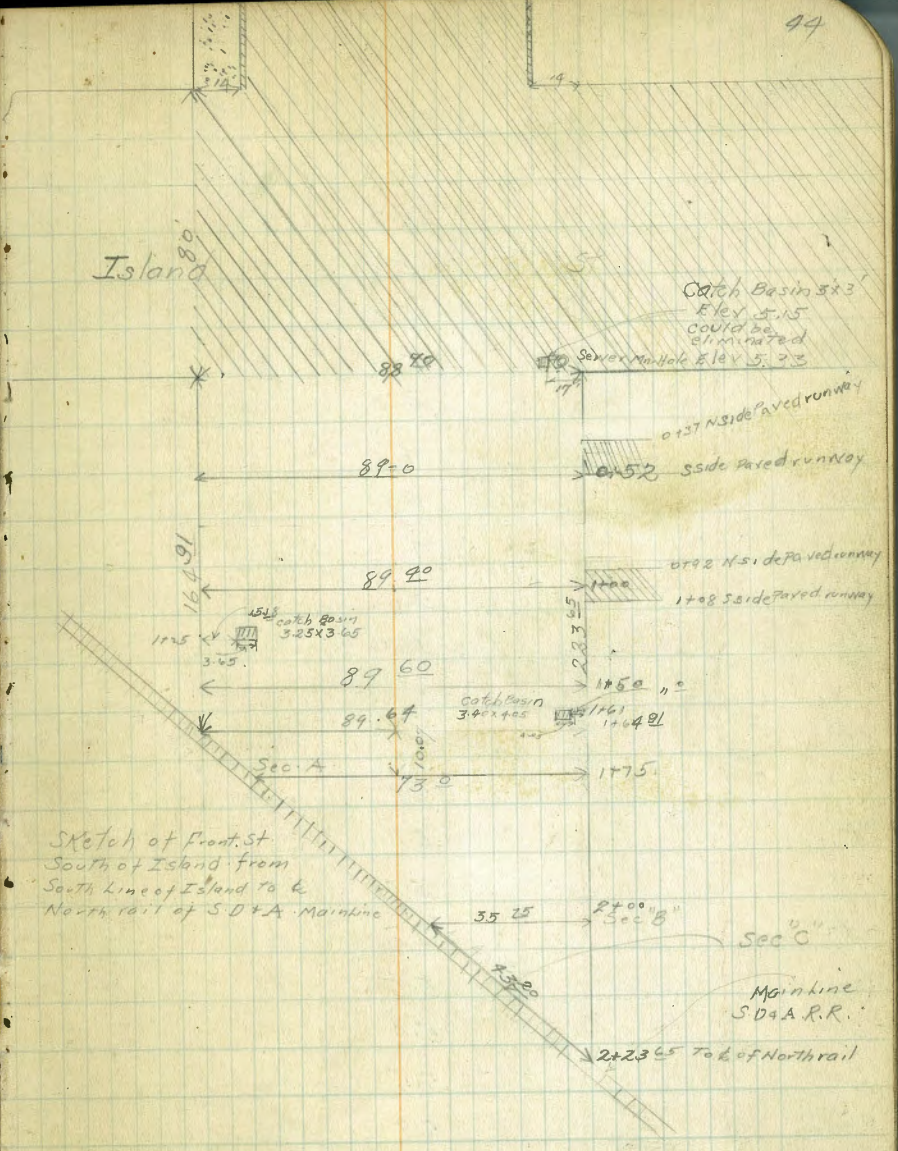 44
14
14
80
Island
St
Catch Basin 3x3'
Elev 5.15
could be
eliminated
Sewer ManHole Elev 5.33
88 40
17
0+37 N side Paved runway
89-0
0+52 S side Paved runway
164 91
0+92 N side Paved runway
89 40
1+00
1+08 S side Paved runway
233 65
catch Basin
3.25x3.65
1+25
3.65
89 60
1+50
Catch Basin
3.40x4.05
1+61
1+64 91
89.64
10.09
Sec. A
73 0
1+75
Sketch of Front. St
South of Island from
South Line of Island to ℄
North rail of S D & A Mainline
35 25
2+00
Sec "B"
Sec "C"
43 20
Main Line
S D & A R.R.
2+23 65 To ℄ of North rail